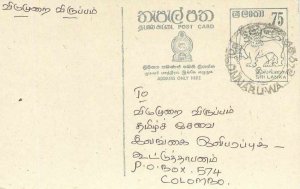 விடுமுறை விருப்பம்
තැපැල් පත
தபாலட்டை POST CARD
ශ්‍රී ලංකා
75
ADDRESS ONLY HERE
இலங்கை
SRI LANKA
To
விடுமுறை விருப்பம்
தமிழ்ச் சேவை
இலங்கை ஒலிபரப்புக்
கூட்டுத்தாபனம்
P.O.BOX. 574
COLOMBO.